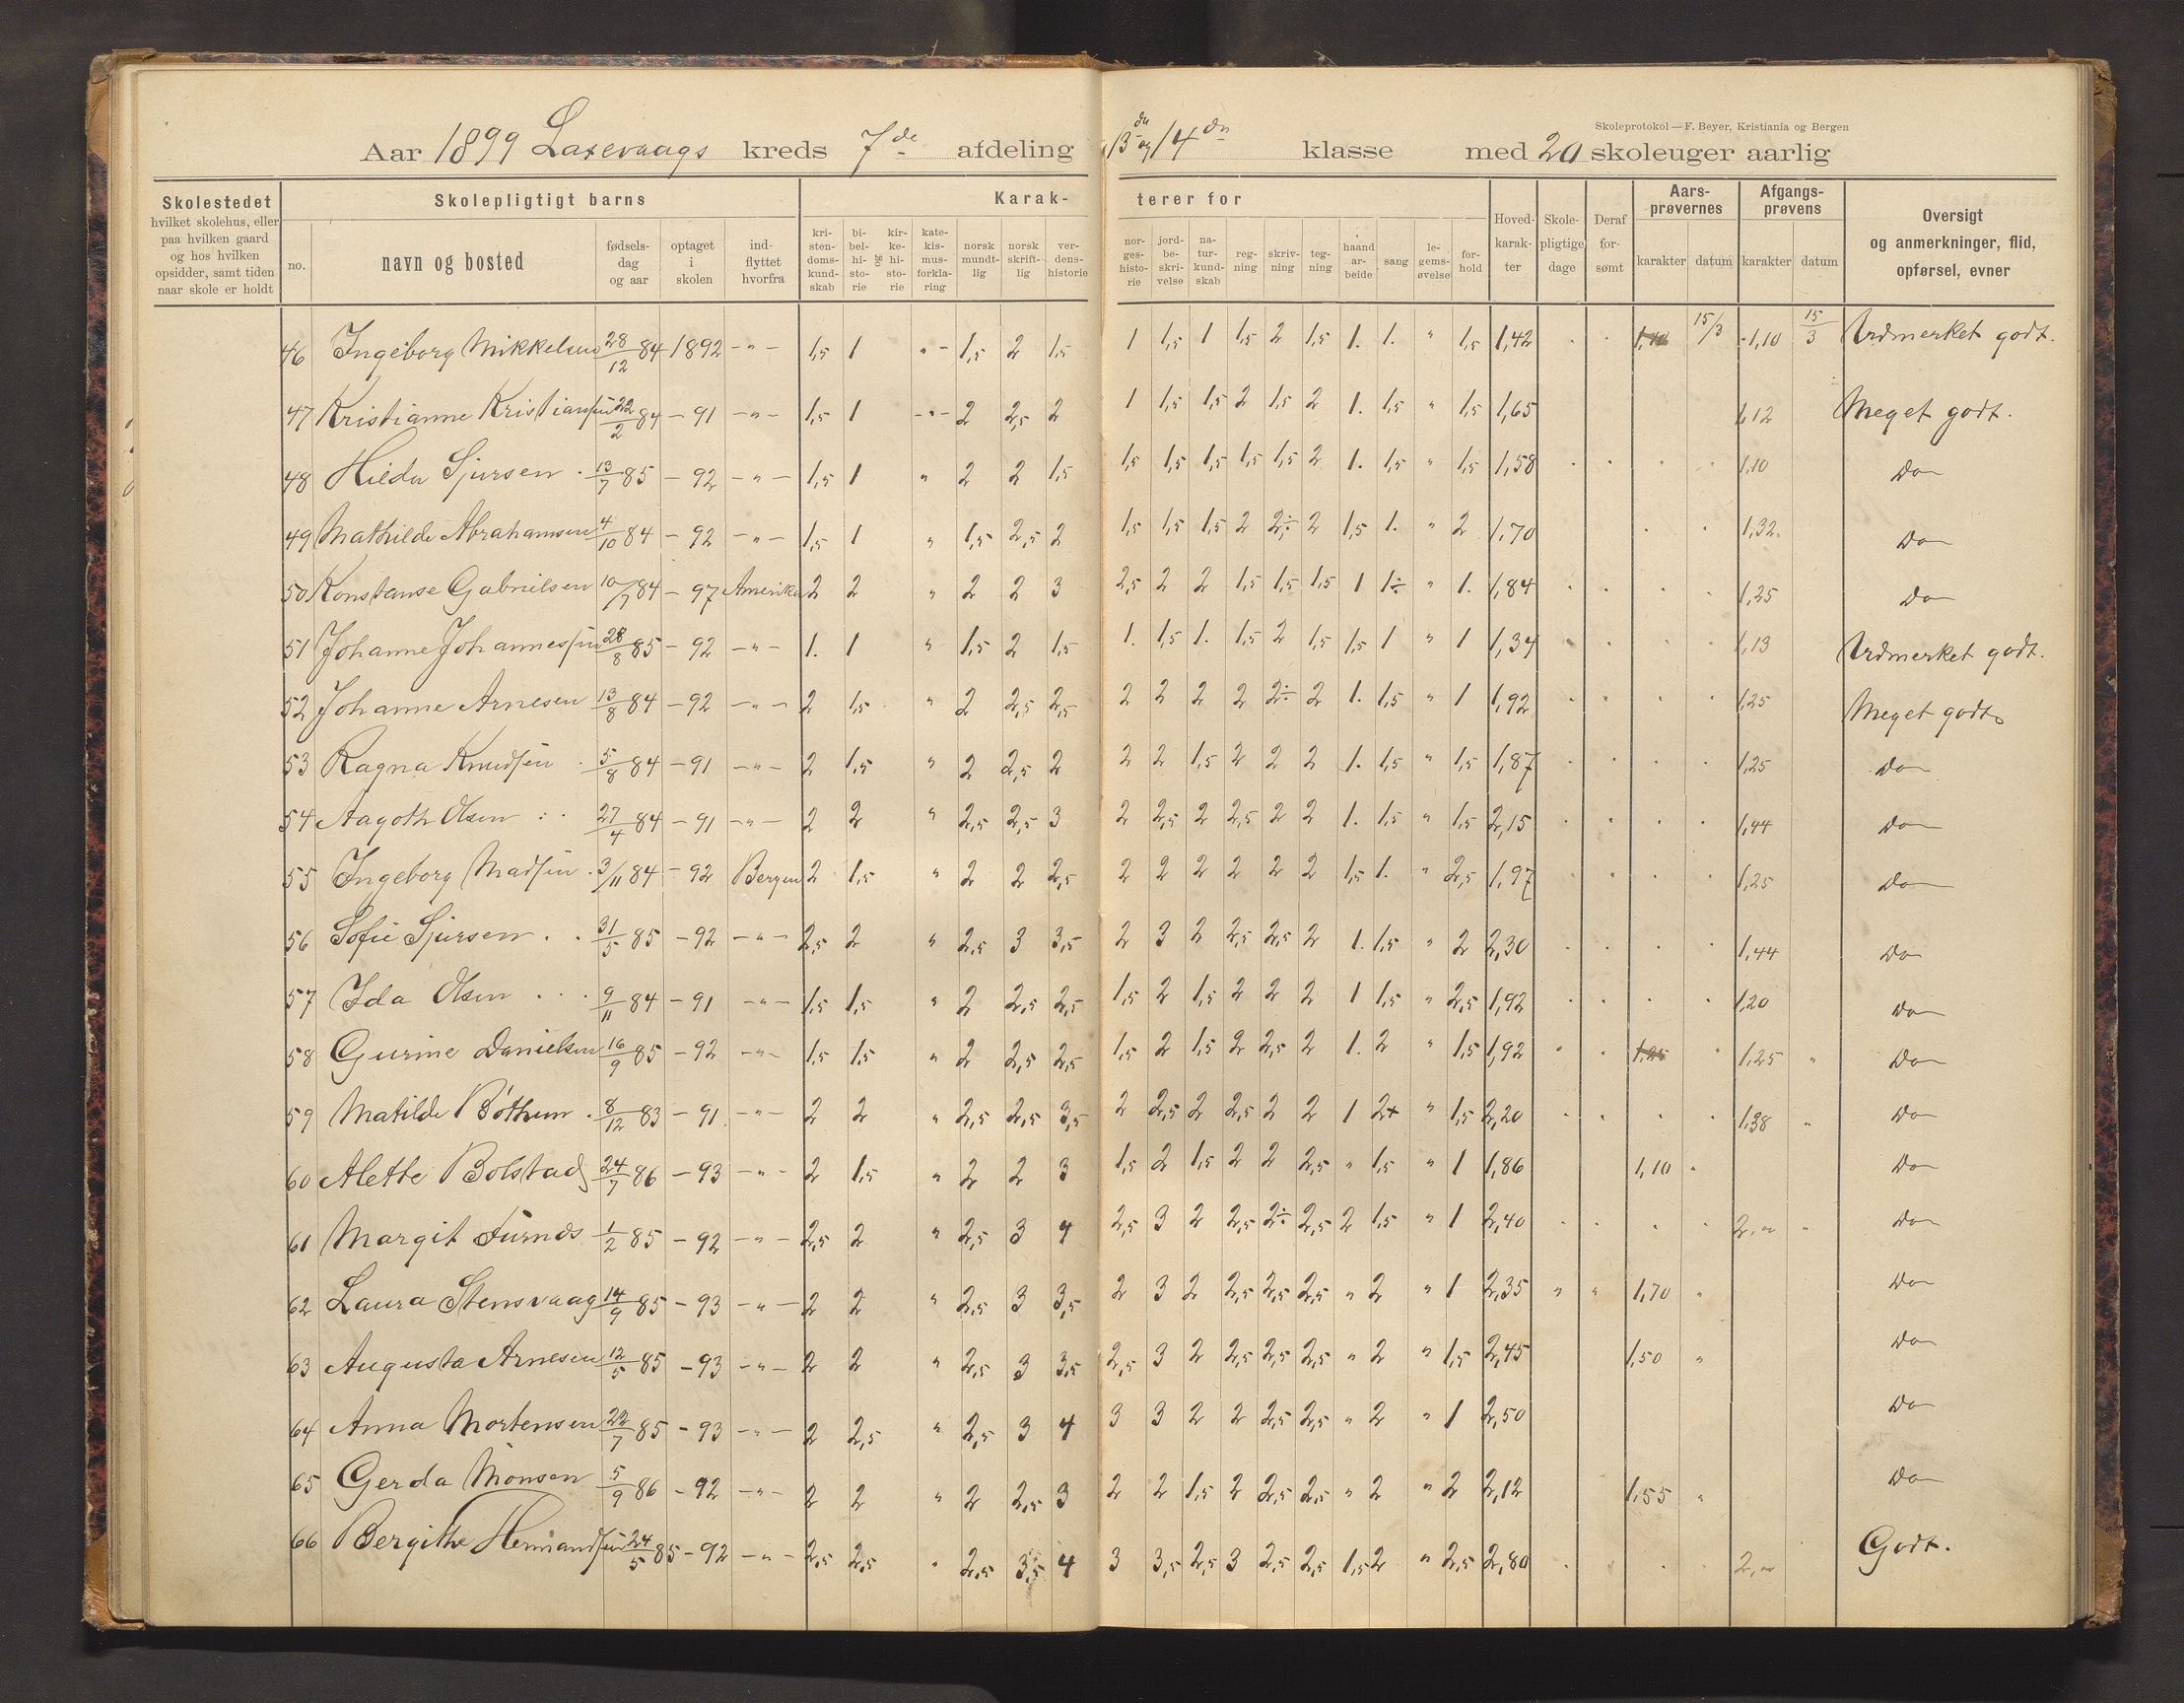 Skoleprotokol — F. Beyer, Kristiania og Bergen
Aar 1899 Laxevaags kreds 7de afdeling 13de og 14de klasse med 20 skoleuger aarlig
Skolestedet hvilket skolehus, eller paa hvilken gaard og hos hvilken opsidder, samt tiden naar skole er holdt
Skolepligtigt barns
no. navn og bosted fødsels-dag og aar optaget i skolen ind-flyttet hvorfra
Karak-terer for
kri-sten-doms-kund-skab bi-bel-hi-sto-rie og kir-ke-hi-sto-rie kate-kis-mus-forkla-ring norsk mundt-lig norsk skrift-lig ver-dens-historie nor-ges-histo-rie jord-be-skri-velse na-tur-kund-skab reg-ning skriv-ning teg-ning haand ar-beide sang le-gems-øvelse for-hold
Hoved-karak-ter Skole-pligtige dage Deraf for-sømt
Aars-prøvernes karakter datum
Afgangs-prøvens karakter datum
Oversigt og anmerkninger, flid, opførsel, evner
46 Ingeborg Mikkelsen 28/12 84 1892 -"- 1,5 1 " 1,5 2 1,5 1 1,5 1 1,5 2 1,5 1. 1. " 1,5 1,42 15/3 1,10 15/3 Udmerket godt.
47 Kristianne Kristiansen 22/2 84 - 91 -"- 1,5 1 -"- 2 2,5 2 1 1,5 1,5 2 1,5 2 1. 1,5 " 1,5 1,65 1,12 Meget godt.
48 Hilda Sjursen 13/7 85 - 92 -"- 1,5 1 " 2 2 1,5 1,5 1,5 1,5 1,5 1,5 2 1. 1,5 " 1,5 1,58 1,10 Do
49 Mathilde Abrahamsen 4/10 84 - 92 -"- 1,5 1 " 1,5 2,5 2 1,5 1,5 1,5 2 2÷ 2 1,5 1. " 2 1,70 1,32. Do
50 Konstanse Gabrielsen 10/7 84 - 97 Amerika 2 2 " 2 2 3 2,5 2 2 1,5 1,5 1,5 1 1÷ " 1. 1,84 1,25 Do
51 Johanne Johannessen 28/8 85 - 92 -"- 1. 1 " 1,5 2 1,5 1. 1,5 1. 1,5 2 1,5 1,5 1 " 1 1,34 1,13 Udmerket godt.
52 Johanne Arnesen 13/8 84 - 92 -"- 2 1,5 " 2 2,5 2,5 2 2 2 2 2÷ 2 1. 1,5 " 1 1,92 1,25 Meget godt
53 Ragna Knudsen 5/8 84 - 91 -"- 2 1,5 " 2 2,5 2 2 2 1,5 2 2 2 1. 1,5 " 1,5 1,87 1,25 Do
54 Aagoth Olsen 27/4 84 - 91 -"- 2 2 " 2,5 2,5 3 2 2,5 2 2,5 2 2 1. 1,5 " 1,5 2,15 1,44 Do
55 Ingeborg Madsen 3/11 84 - 92 Bergen 2 1,5 " 2 2 2,5 2 2 2 2 2 2 1,5 1. " 2,5 1,97 1,25 Do
56 Sofie Sjursen 31/5 85 - 92 -"- 2,5 2 " 2,5 3 3,5 2 3 2 2,5 2,5 2 1. 1,5 " 2 2,30 1,44 Do
57 Ida Olsen 9/11 84 - 91 -"- 1,5 1,5 " 2 2,5 2,5 1,5 2 1,5 2 2 2 1 1,5 " 2,5 1,92 1,20 Do
58 Gurine Danielsen 16/9 85 - 92 -"- 1,5 1,5 " 2 2,5 2,5 1,5 2 1,5 2 2,5 2 1. 2 " 1,5 1,92 1,25 1,25 " Do
59 Matilde Bøthun 8/12 83 - 91 -"- 2 2 " 2,5 2,5 3,5 2 2,5 2 2,5 2 2 1 2+ " 1,5 2,20 1,38 " Do
60 Alette Bolstad 24/7 86 - 93 -"- 2 1,5 " 2 2 3 1,5 2 1,5 2 2 2,5 " 1,5 " 1 1,86 1,10 " Do
61 Margit Furnæs 1/2 85 - 92 -"- 2,5 2 " 2,5 3 4 2,5 3 2 2,5 2÷ 2,5 2 1,5 " 1 2,40 2," " Do
62 Laura Stensvaag 14/9 85 - 93 -"- 2 2 " 2,5 3 3,5 2 3 2 2,5 2,5 2,5 " 2 " 1 2,35 " " 1,70 " Do
63 Augusta Arnesen 12/5 85 - 93 -"- 2 2 " 2,5 3 3,5 2,5 3 2 2,5 2,5 2,5 " 2 " 1,5 2,45 1,50 " Do
64 Anna Mortensen 22/7 85 - 93 -"- 2 2,5 " 2,5 3 4 3 3 2 2 2,5 2,5 " 2 " 1 2,50 Do
65 Gerda Monsen 5/9 86 - 92 -"- 2 2 " 2 2,5 3 2 2 1,5 2 2,5 2,5 " 2 " 2 2,12 1,55 " Do
66 Bergithe Hermandsen 24/5 85 - 92 -"- 2,5 2,5 " 2,5 3,5 4 3 3,5 2,5 3 2,5 2,5 1,5 2 " 2,5 2,80 2," Godt.